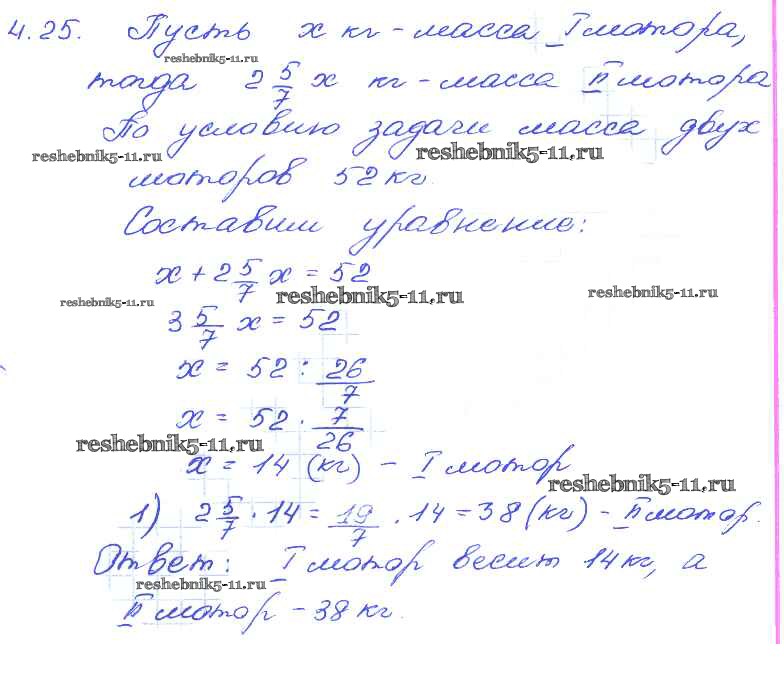 4.25. Пусть x кг - масса I мотора,
reshebnik5-11.ru
тогда 2 5/7 x кг - масса II мотора
По условию задачи масса двух
reshebnik5-11.ru reshebnik5-11.ru
моторов 52 кг.
Составим уравнение:
x + 2 5/7 x = 52
reshebnik5-11.ru reshebnik5-11.ru reshebnik5-11.ru
3 5/7 x = 52
x = 52 : 26/7
x = 52 · 7/26
reshebnik5-11.ru
x = 14 (кг) - I мотор
reshebnik5-11.ru
1) 2 5/7 · 14 = 19/7 · 14 = 38 (кг) - II мотор.
Ответ: I мотор весит 14 кг, а
reshebnik5-11.ru
II мотор - 38 кг.